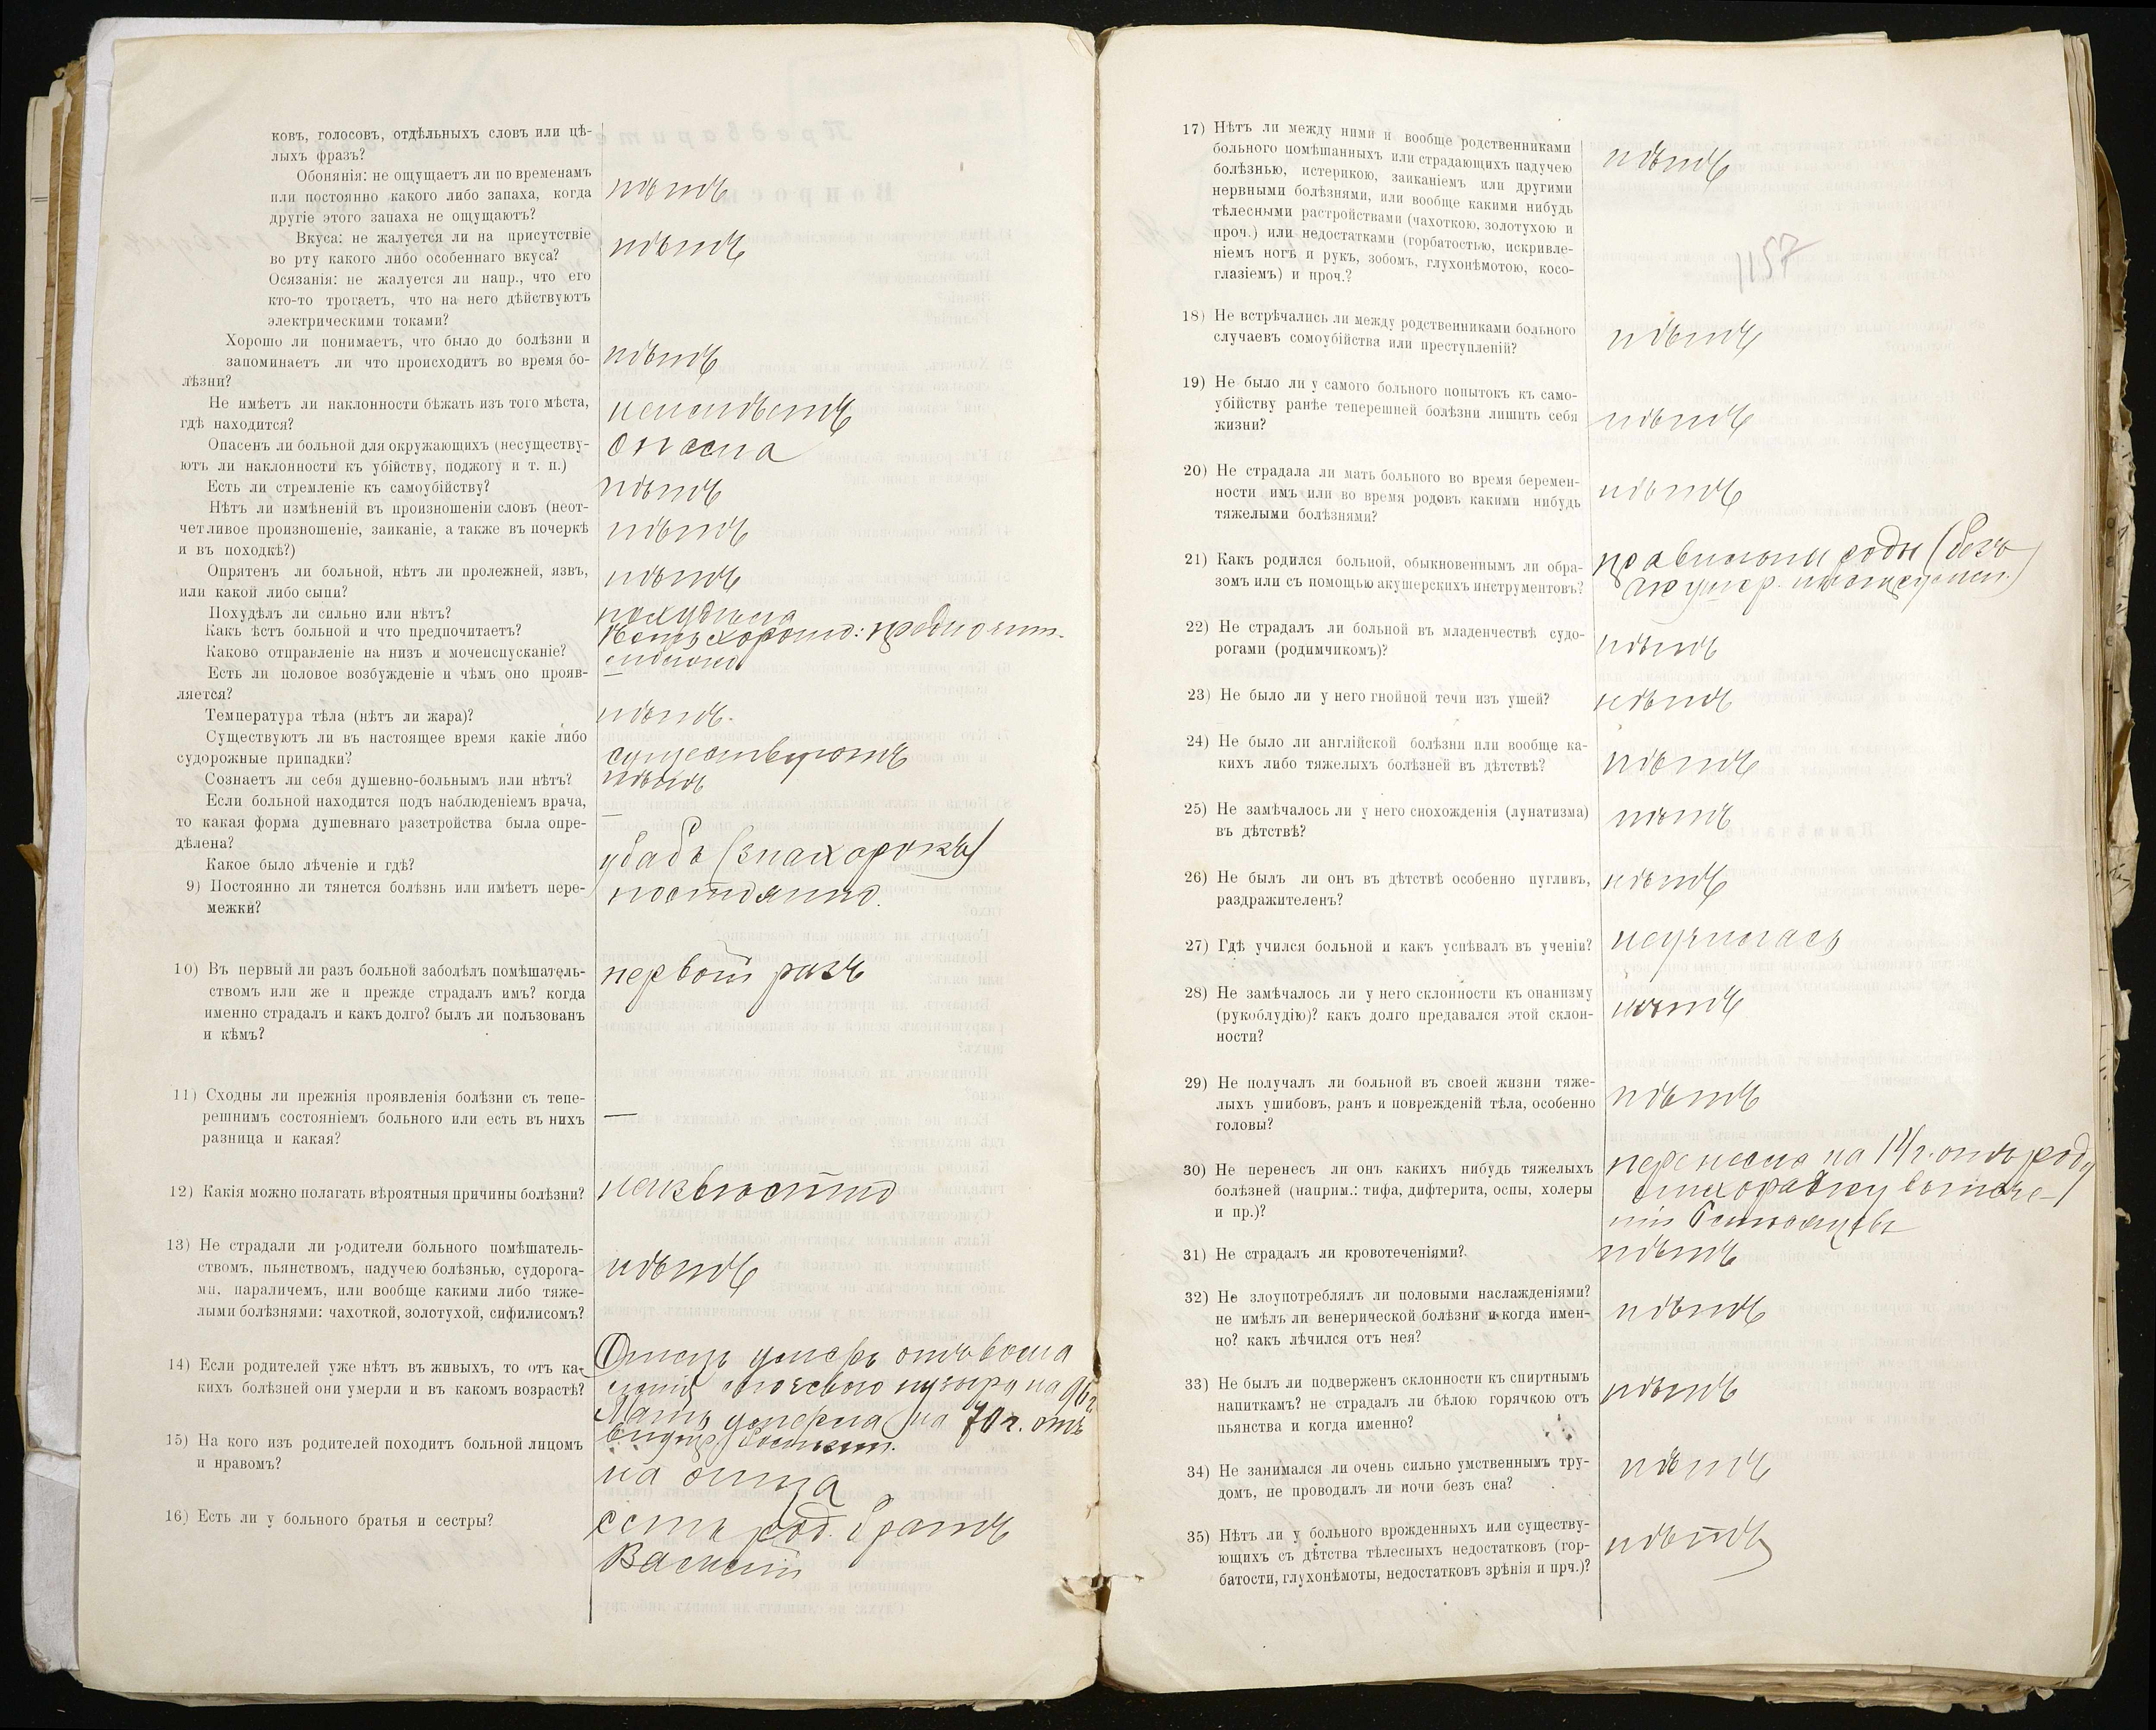 ковъ, голосовъ, отдѣльныхъ словъ или цѣ-
лыхъ фразъ?
Обонянія: не ощущаетъ ли по временамъ
или постоянно какого либо запаха, когда
другіе этого запаха не ощущаютъ?
нѣтъ
Вкуса: не жалуется ли на присутствіе
во рту какого либо особеннаго вкуса?
нѣтъ
Осязанія: не жалуется ли напр., что его
кто-то трогаетъ, что на него дѣйствуютъ
электрическими токами?
Хорошо ли понимаетъ, что было до болѣзни и
запоминаетъ ли что происходитъ во время бо-
лѣзни?
нѣтъ
Не имѣетъ ли наклонности бѣжать изъ того мѣста,
гдѣ находится?
неимѣетъ
Опасенъ ли больной для окружающихъ (несуществу-
ютъ ли наклонности къ убійству, поджогу и т. п.)
опасна
Есть ли стремленіе къ самоубійству?
нѣтъ
Нѣтъ ли измѣненій въ произношеніи словъ (неот-
четливое произношеніе, заиканіе, а также въ почеркѣ
и въ походкѣ?)
нѣтъ
Опрятенъ ли больной, нѣтъ ли пролежней, язвъ,
или какой либо сыпи?
нѣтъ
Похудѣлъ ли сильно или нѣтъ?
похудѣла
Какъ ѣстъ больной и что предпочитаетъ?
ѣстъ хорошо:
Каково отправленіе на низъ и мочеиспусканіе?
Есть ли половое возбужденіе и чѣмъ оно прояв-
ляется?
—
Температура тѣла (нѣтъ ли жара)?
нѣтъ.
Существуютъ ли въ настоящее время какіе либо
судорожные припадки?
существуютъ
Сознаетъ ли себя душевно-больнымъ или нѣтъ?
нѣтъ
Если больной находится подъ наблюденіемъ врача,
то какая форма душевнаго разстройства была опре-
дѣлена?
—
Какое было лѣченіе и гдѣ?
убабъ (знахорокъ)
9) Постоянно ли тянется болѣзнь или имѣетъ пере-
межки?
постоянно.
10) Въ первый ли разъ больной заболѣлъ помѣшатель-
ствомъ или же и прежде страдалъ имъ? когда
именно страдалъ и какъ долго? былъ ли пользованъ
и кѣмъ?
первой разъ
11) Сходны ли прежнія проявленія болѣзни съ тепе-
решнимъ состояніемъ больного или есть въ нихъ
разница и какая?
—
12) Какія можно полагать вѣроятныя причины болѣзни?
неизвѣстно
13) Не страдали ли родители больного помѣшатель-
ствомъ, пьянствомъ, падучею болѣзнью, судорога-
ми, параличемъ, или вообще какими либо тяже-
лыми болѣзнями: чахоткой, золотухой, сифилисомъ?
нѣтъ
14) Если родителей уже нѣтъ въ живыхъ, то отъ ка-
кихъ болѣзней они умерли и въ какомъ возрастѣ?
Отецъ умеръ отъ
пузыря на
Мать умерла на 70 г. отъ
15) На кого изъ родителей походитъ больной лицомъ
и нравомъ?
на отца
16) Есть ли у больного братья и сестры?
есть род. братъ
Василій
17) Нѣтъ ли между ними и вообще родственниками
больного помѣшанныхъ или страдающихъ падучею
болѣзнью, истерикою, заиканіемъ или другими
нервными болѣзнями, или вообще какими нибудь
тѣлесными растройствами (чахоткою, золотухою и
проч.) или недостатками (горбатостью, искривле-
ніемъ ногъ и рукъ, зобомъ, глухонѣмотою, косо-
глазіемъ) и проч.?
нѣтъ
1157
18) Не встрѣчались ли между родственниками больного
случаевъ сомоубійства или преступленій?
нѣтъ
19) Не было ли у самого больного попытокъ къ само-
убійству ранѣе теперешней болѣзни лишить себя
жизни?
нѣтъ
20) Не страдала ли мать больного во время беремен-
ности имъ или во время родовъ какими нибудь
тяжелыми болѣзнями?
нѣтъ
21) Какъ родился больной, обыкновеннымъ ли обра-
зомъ или съ помощью акушерскихъ инструментовъ?
правильны роды (безъ
акушер. инструмен.)
22) Не страдалъ ли больной въ младенчествѣ судо-
рогами (родимчикомъ)?
нѣтъ
23) Не было ли у него гнойной течи изъ ушей?
нѣтъ
24) Не было ли англійской болѣзни или вообще ка-
кихъ либо тяжелыхъ болѣзней въ дѣтствѣ?
нѣтъ
25) Не замѣчалось ли у него снохожденія (лунатизма)
въ дѣтствѣ?
нѣтъ
26) Не былъ ли онъ въ дѣтствѣ особенно пугливъ,
раздражителенъ?
нѣтъ
27) Гдѣ учился больной и какъ успѣвалъ въ ученіи?
неучилась
28) Не замѣчалось ли у него склонности къ онанизму
(рукоблудію)? какъ долго предавался этой склон-
ности?
нѣтъ
29) Не получалъ ли больной въ своей жизни тяже-
лыхъ ушибовъ, ранъ и поврежденій тѣла, особенно
головы?
нѣтъ
30) Не перенесъ ли онъ какихъ нибудь тяжелыхъ
болѣзней (наприм.: тифа, дифтерита, оспы, холеры
и пр.)?
перенесла на 14 г. отъ роду
лихорадку втече-
ніи 6 мѣсяцовъ
31) Не страдалъ ли кровотеченіями?
нѣтъ
32) Не злоупотреблялъ ли половыми наслажденіями?
не имѣлъ ли венерической болѣзни и когда имен-
но? какъ лѣчился отъ нея?
нѣтъ
33) Не былъ ли подверженъ склонности къ спиртнымъ
напиткамъ? не страдалъ ли бѣлою горячкою отъ
пьянства и когда именно?
нѣтъ
34) Не занимался ли очень сильно умственнымъ тру-
домъ, не проводилъ ли ночи безъ сна?
нѣтъ
35) Нѣтъ ли у больного врожденныхъ или существу-
ющихъ съ дѣтства тѣлесныхъ недостатковъ (гор-
батости, глухонѣмоты, недостатковъ зрѣнія и прч.)?
нѣтъ